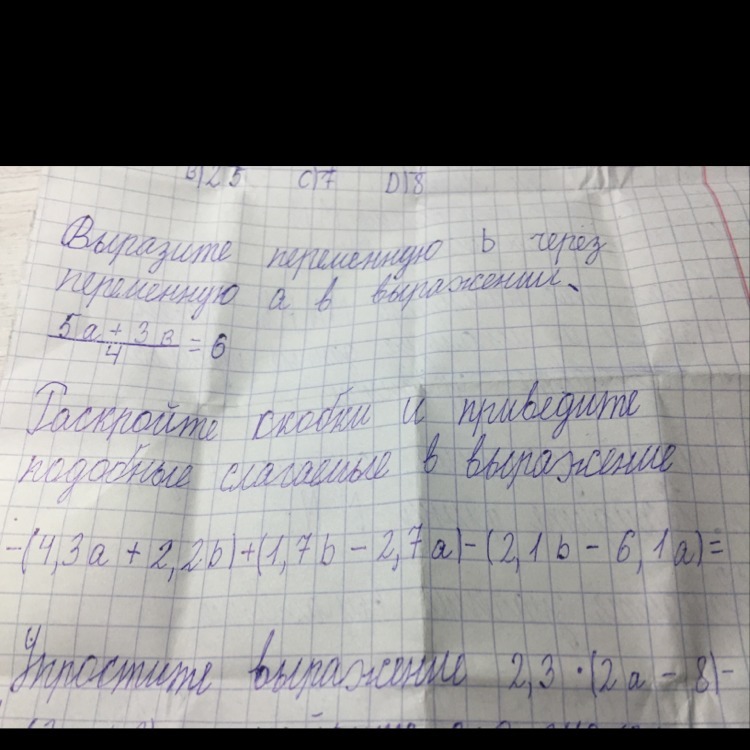 B) 2,5 C) 7 D) 8
Выразите переменную b через
переменную a в выражении.
5a + 3в
4
= 6
Раскройте скобки и приведите
подобные слагаемые в выражение
-(4,3a + 2,2b)+(1,7b - 2,7a)-(2,1b - 6,1a)=
Упростите выражение 2,3·(2a - 8)-